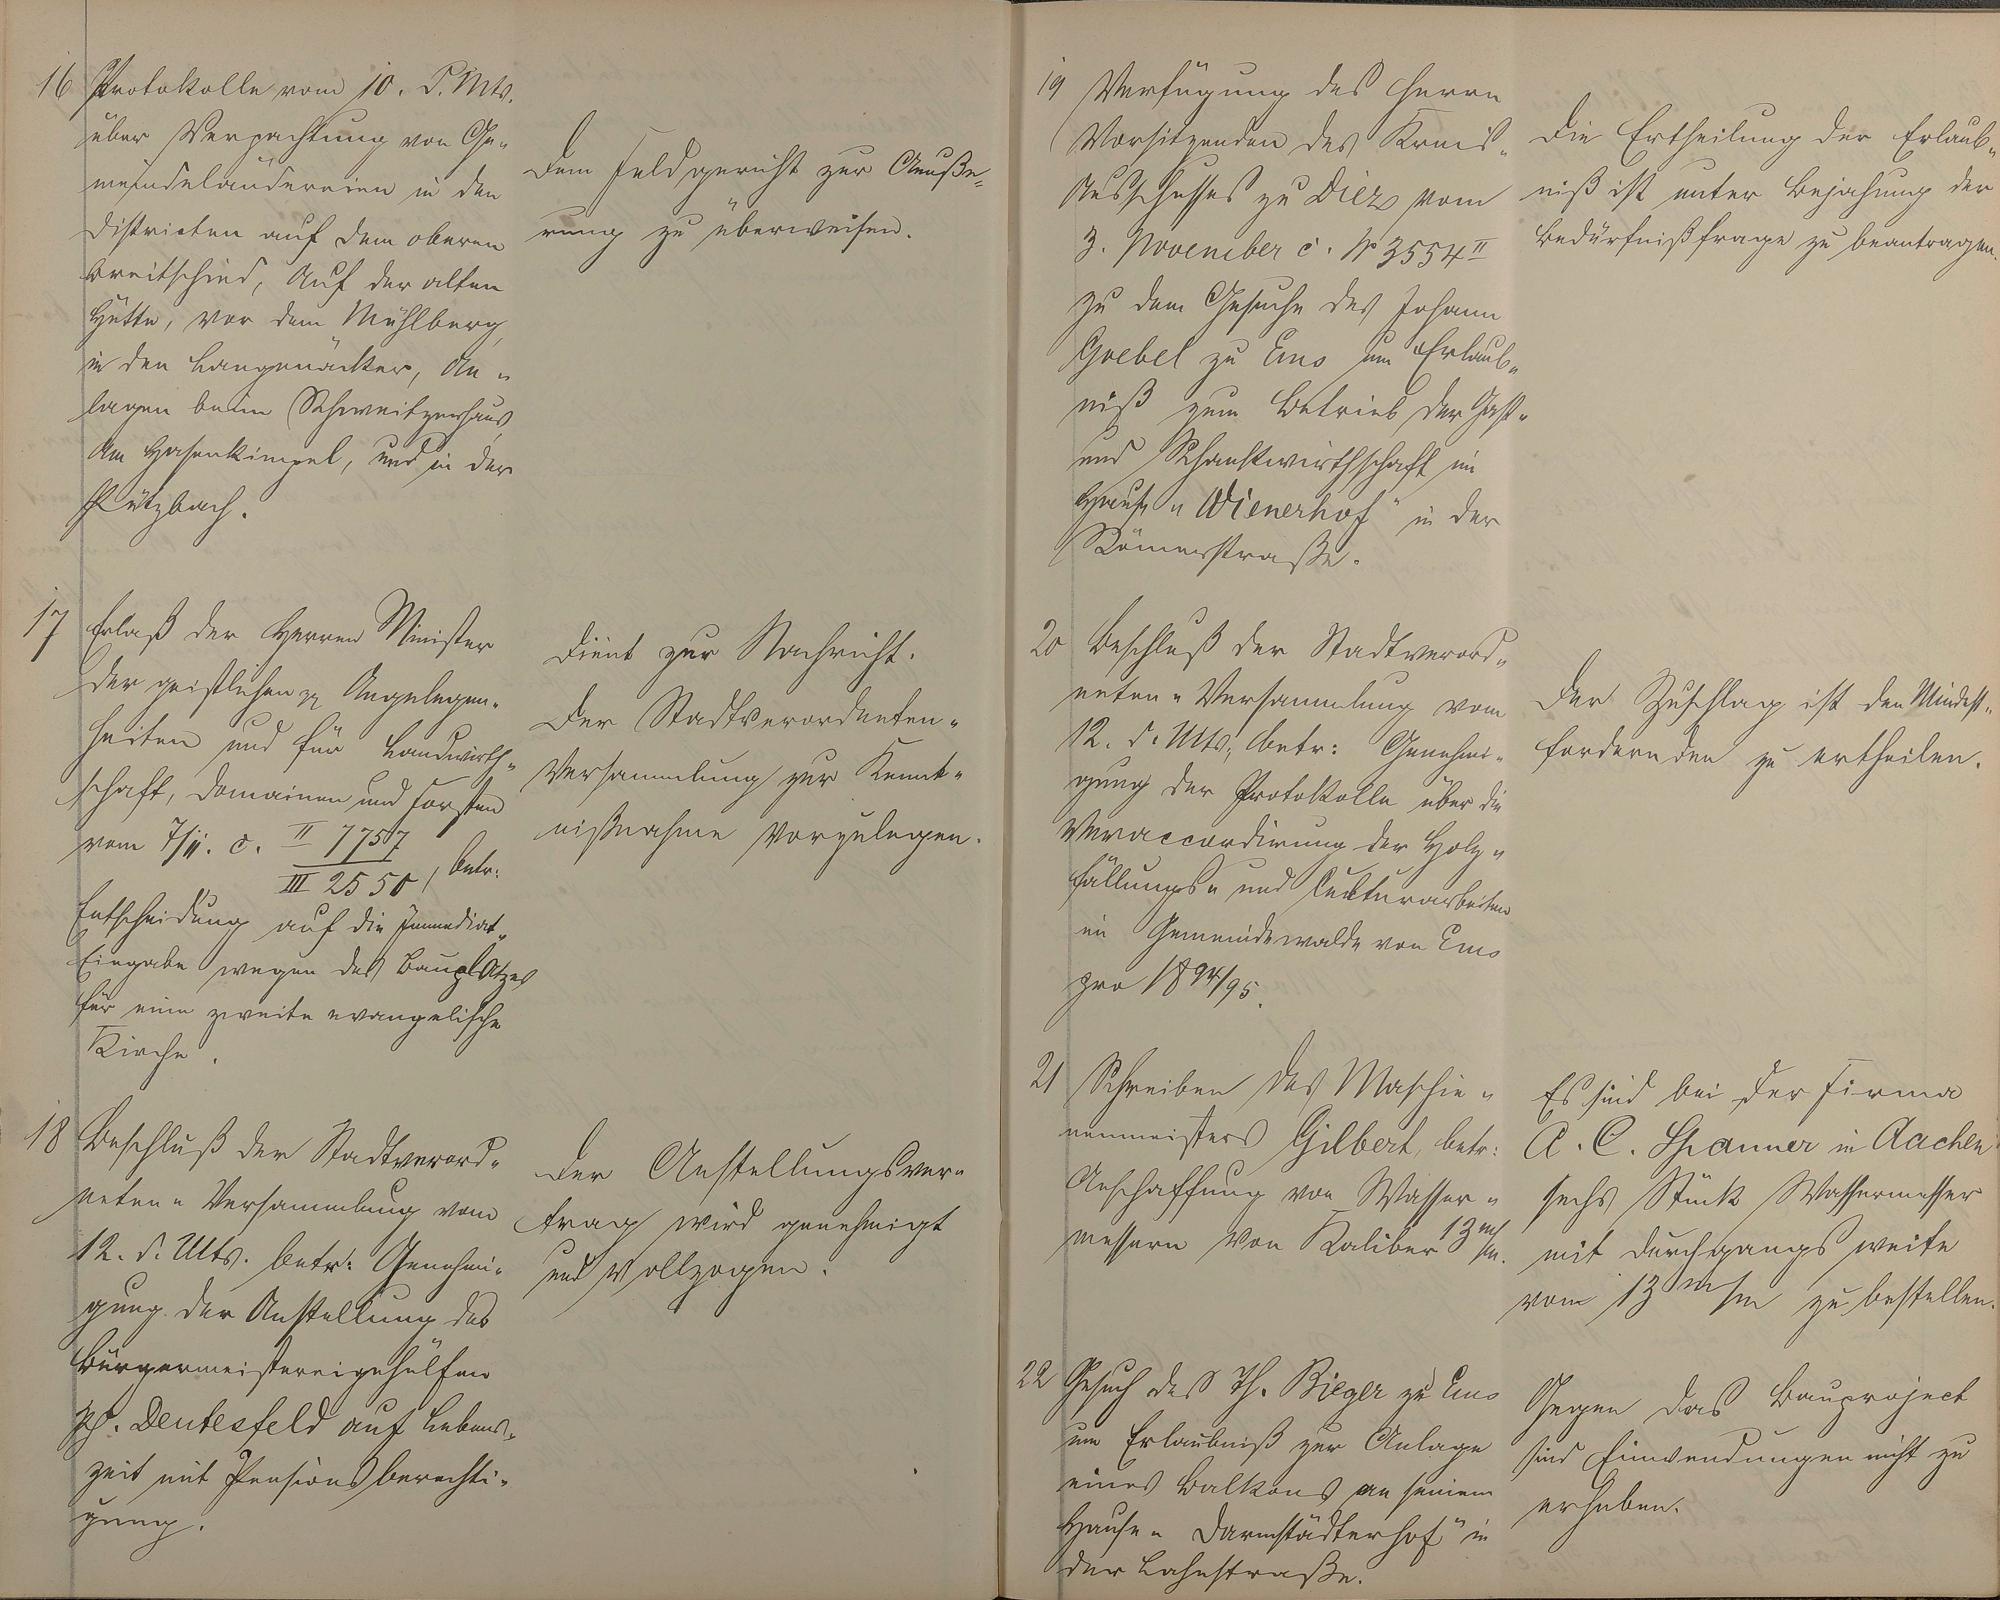 16 Protokolle vom 10. d. Mts.
über Verpachtung von Ge-
meindeländereien in den
Districten auf dem oberen
Breitschied, Auf der alten
Hütte, vor dem Mühlberg,
in den Langenäcker, An-
lagen beim Schweitzerhaus,
Am Hasenkimpel, und in der
Pfützbach.
Dem Feldgericht zur Aeuße-
rung zu überweisen.
17 Erlaß der Herren Minister
der geistlichen pp Angelegen-
heiten und für Landwirth-
schaft, Domainen und Forsten
vom 7/11. c. II 7757
III 2550, betr:
Entscheidung auf die Immediat-
Eingabe wegen des Bauplatzes
für eine zweite evangelische
Kirche.
Dient zur Nachricht.
Der Stadtverordneten-
Versammlung zur Kennt-
nißnahme vorzulegen.
18 Beschluß der Stadtverord-
neten-Versammlung vom
12. d. Mts. betr: Genehmi-
gung der Anstellung des
Bürgermeistereigehülfen
Ph. Deutesfeld auf Lebens-
zeit mit Pensionsberechti-
gung.
Der Anstellungsver-
trag wird genehmigt
und vollzogen.
19 Verfügung des Herrn
Vorsitzenden des Kreis-
Ausschusses zu Diez vom
3. November c. No 3554 II
zu dem Gesuche des Johann
Goebel zu Ems um Erlaub-
niß zum Betrieb der Gast-
und Schankwirthschaft im
Hause "Wienerhof" in der
Römerstraße.
Die Ertheilung der Erlaub-
niß ist unter Bejahung der
Bedürfnißfrage zu beantragen.
20 Beschluß der Stadtverord-
neten-Versammlung vom
12. d. Mts, betr: Genehmi-
gung der Protokolle über die
Veraccordirung der Holz-
fällungs- und Culturarbeiten
im Gemeindewalde von Ems
pro 1894/95.
Der Zuschlag ist den Mindest-
fordernden zu ertheilen.
21 Schreiben des Maschie-
nenmeisters Gilbert, betr:
Anschaffung von Wasser-
messern von Kaliber 13 m/m.
Es sind bei der Firma
A. C. Spanner in Aachen
sechs Stück Wassermesser
mit Durchgangsweite
vom 13 m/m zu bestellen.
22 Gesuch des Th. Bieger zu Ems
um Erlaubniß zur Anlage
eines Balkons an seinem
Hause "Darmstädterhof" in
der Lahnstraße.
Gegen das Bauproject
sind Einwendungen nicht zu
erheben.